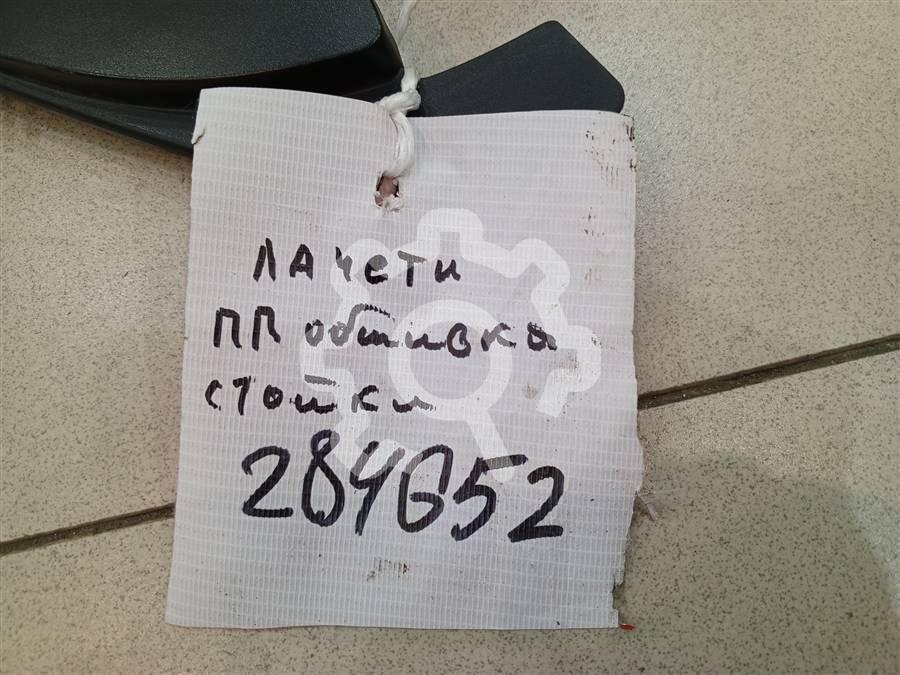 ЛАЧЕТИ
ПП обшивка
стойки
284652